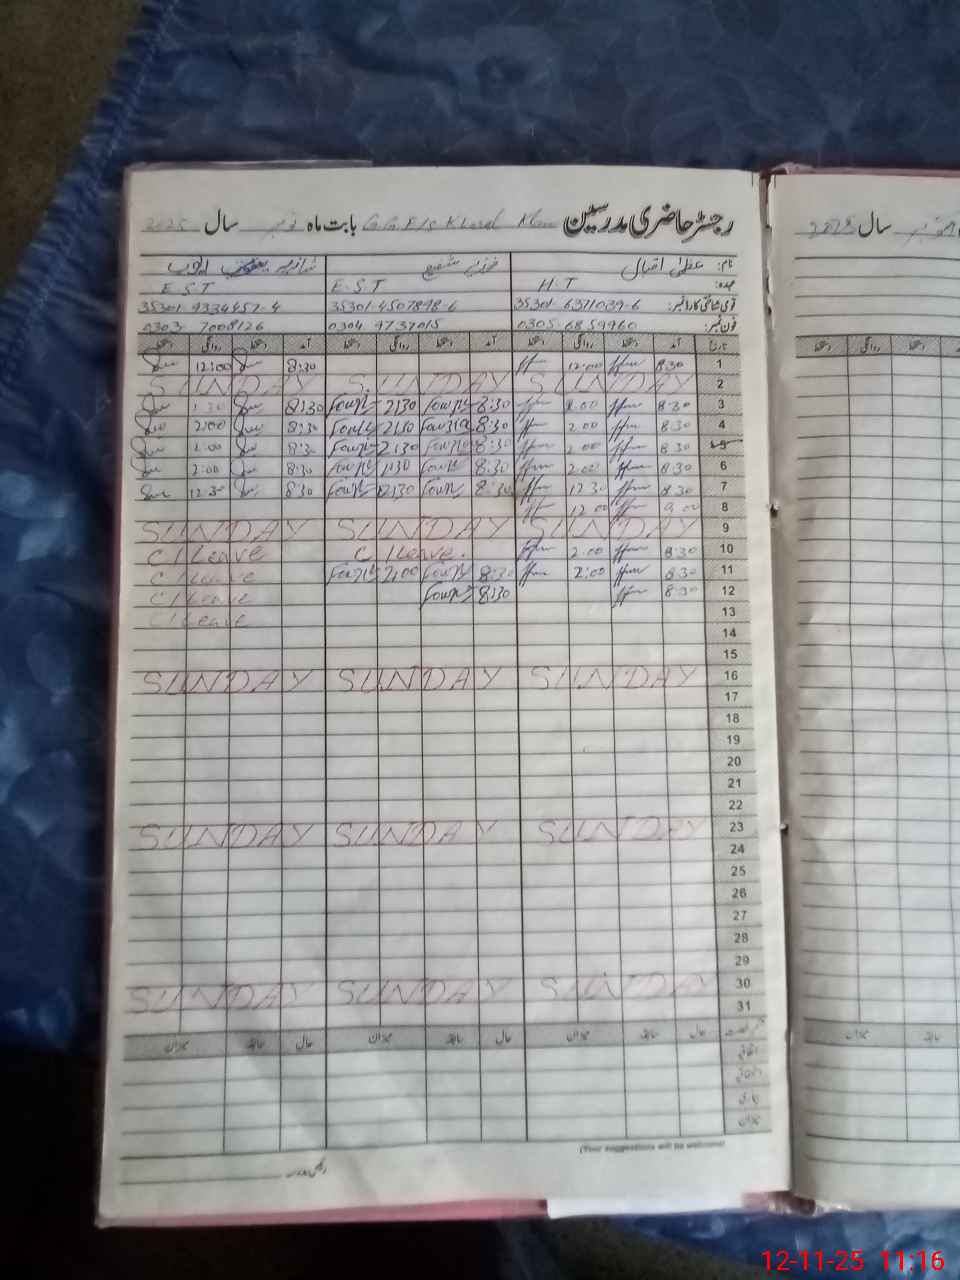 رجسٹر حاضری مدرسین G.G.E/S Kharal Klan بابت ماہ نومبر سال 2025
نام: عظمیٰ اقبال فوزیہ شفیع شازیہ ایوب
عہدہ: H.T E.S.T E.S.T
قومی شناختی کارڈ نمبر: 35301-6371039-6 35301-4507898-6 35301-9334457-4
فون نمبر: 0305 6859960 0304 9737015 0303 7008126
تاریخ آمد دستخط روانگی دستخط آمد دستخط روانگی دستخط آمد دستخط روانگی دستخط
1 8:30 12:00 8:30 12:00
2 SUNDAY SUNDAY SUNDAY
3 8:30 2:00 8:30 Fouzia 2:30 Fouzia 8:30
4 8:30 2:00 8:30 Fouzia 2:30 Fouzia 8:30 2:00
5 8:30 2:00 8:30 Fouzia 2:30 Fouzia 8:30 2:00
6 8:30 2:00 8:30 Fouzia 1:30 Fouzia 8:30 2:00
7 8:30 12:30 8:30 Fouzia 12:30 Fouzia 8:30 12:30
8 9:00 12:00
9 SUNDAY SUNDAY SUNDAY
10 8:30 2:00 C/Leave. C/Leave
11 8:30 2:00 8:30 Fouzia 2:00 Fouzia C/Leave
12 8:30 8:30 Fouzia C/Leave
13 C/Leave
14
15
16 SUNDAY SUNDAY SUNDAY
17
18
19
20
21
22
23 SUNDAY SUNDAY SUNDAY
24
25
26
27
28
29
30 SUNDAY SUNDAY SUNDAY
31
حال سابقہ میزان حال سابقہ میزان حال سابقہ میزان
اتفاقی
بیماری
میزان
(Your suggestions will be welcome)
سال
12-11-25 11:16